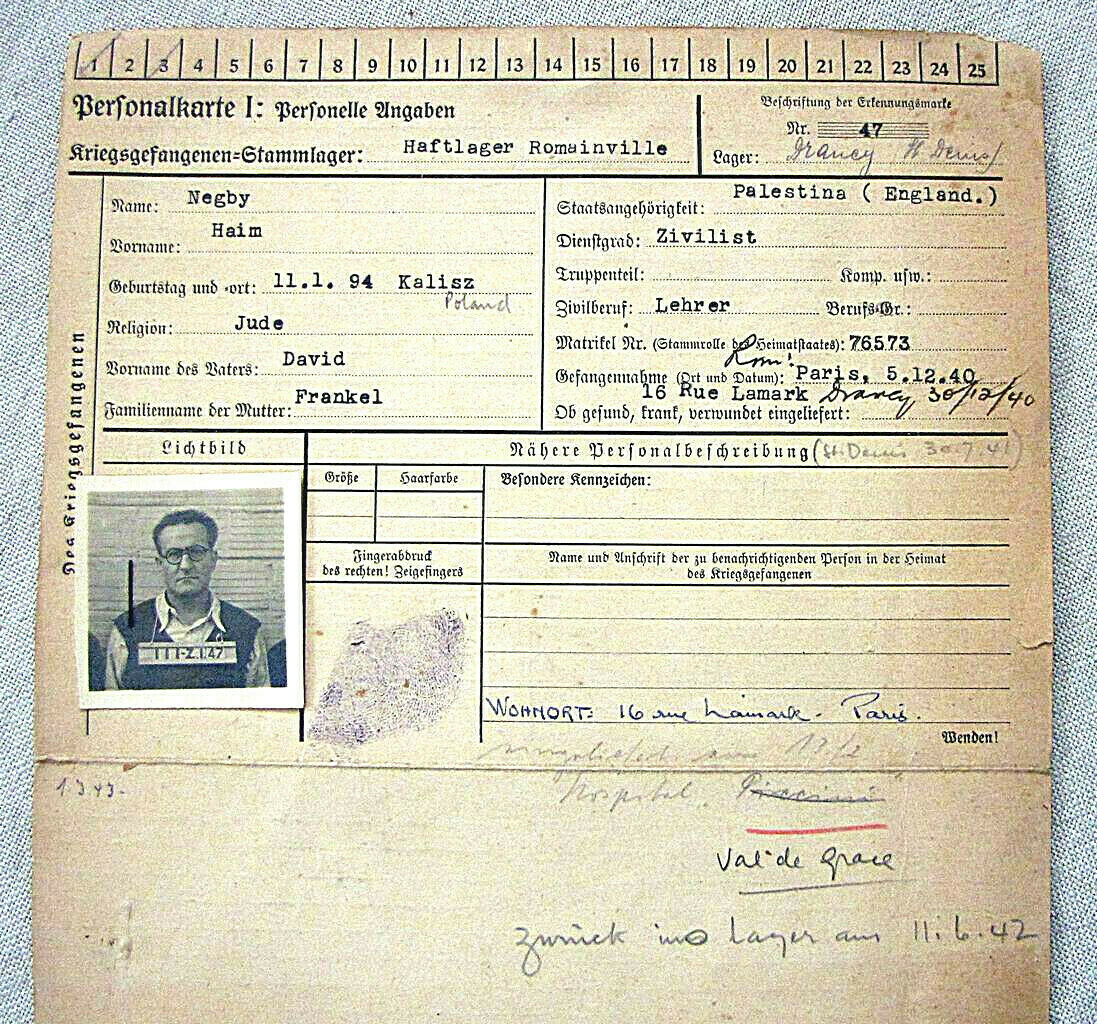 1 2 3 4 5 6 7 8 9 10 11 12 13 14 15 16 17 18 19 20 21 22 23 24 25
Personalkarte I: Personelle Angaben
Kriegsgefangenen=Stammlager: Haftlager Romainville
Beschriftung der Erkennungsmarke
Nr. 47
Lager: Drancy St Denis
Des Kriegsgefangenen
Name: Negby
Vorname: Haim
Geburtstag und -ort: 11.1. 94 Kalisz
Poland
Religion: Jude
Vorname des Vaters: David
Familienname der Mutter: Frankel
Staatsangehörigkeit: Palestina ( England.)
Dienstgrad: Zivilist
Truppenteil: Komp. usw.:
Zivilberuf: Lehrer Berufs-Gr.:
Matrikel Nr. (Stammrolle des Heimatstaates): 76573
Rom!
Gefangennahme (Ort und Datum): Paris, 5.12.40
16 Rue Lamark Drancy 30/12/40
Ob gesund, krank, verwundet eingeliefert:
Lichtbild
III-Z.I.47
Nähere Personalbeschreibung (St. Denis 30.7.41)
Größe Haarfarbe Besondere Kennzeichen:
Fingerabdruck
des rechten! Zeigefingers
Name und Anschrift der zu benachrichtigenden Person in der Heimat
des Kriegsgefangenen
WOHNORT: 16 rue Lamark - Paris.
Wenden!
am 17/2
1343-
Hospital
Val de Grace
zurück ins Lager am 11.6.42